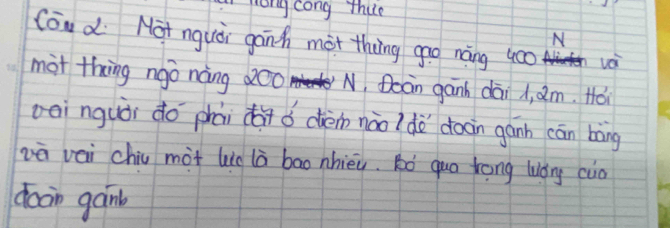 cong thức
Câu 2: Một người gánh một thùng gạo nặng 400 N và
một thùng ngô nặng 200 N. Đoàn gánh dài 1,2m. Hỏi
vai người đó phải đặt ở điểm nào? để đoàn gánh cân bằng
và vai chịu một lực là bao nhiêu. Bỏ qua trọng lượng của
đoàn gánh